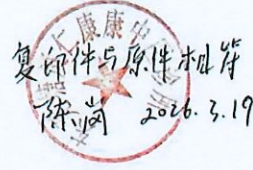 复印件与原件相符
陈岗 2026.3.19
仁康中